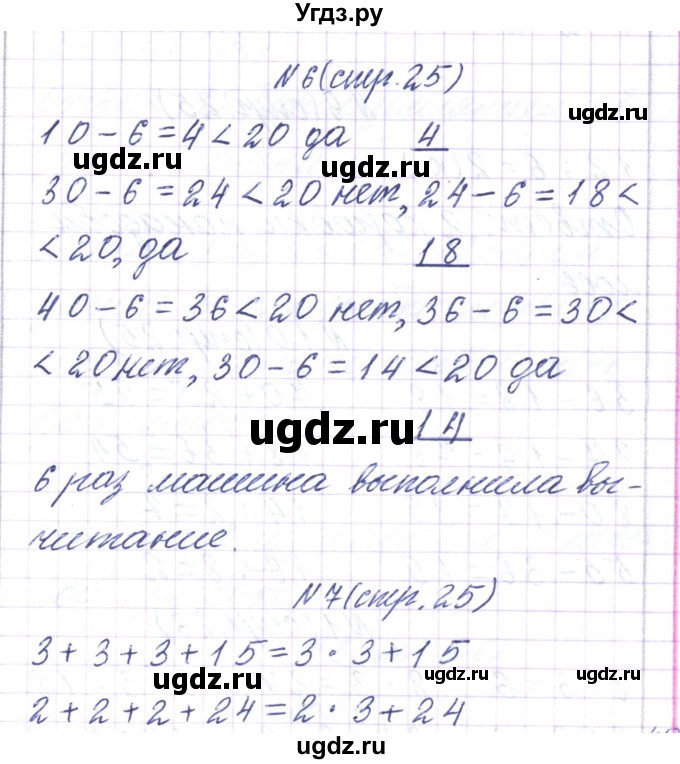 Угдз.ру
N6(стр.25)
10-6=4<20 да 4
30-6=24<20 нет, 24-6=18<
<20, да 18
40-6=36<20 нет, 36-6=30<
<20 нет, 30-6=14<20 да
14
6 раз машина выполнила вы-
читание.
N7(стр.25)
3+3+3+15=3·3+15
2+2+2+24=2·3+24
ugdz.ru
ugdz.ru
ugdz.ru
ugdz.ru
ugdz.ru
ugdz.ru
ugdz.ru
ugdz.ru